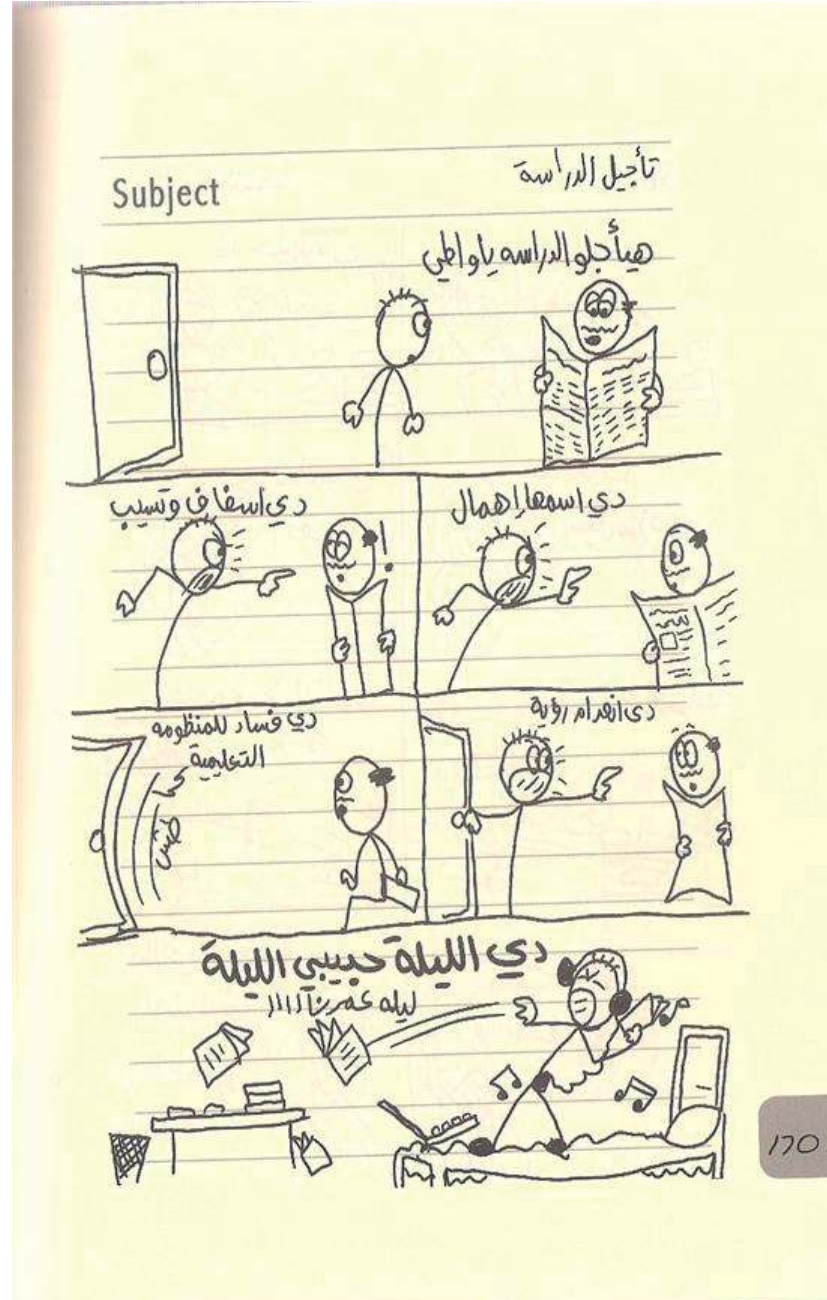 Subject
تأجيل الدراسة
هيأجلو الدراسه ياواطي
دي اسمها إهمال
دي اسفاف وتسيب
دى انعدام رؤية
دي فساد للمنظومه
التعليمية
طش
دي الليلة حبيبي الليلة
ليله عمرنآاااا
١٦٥